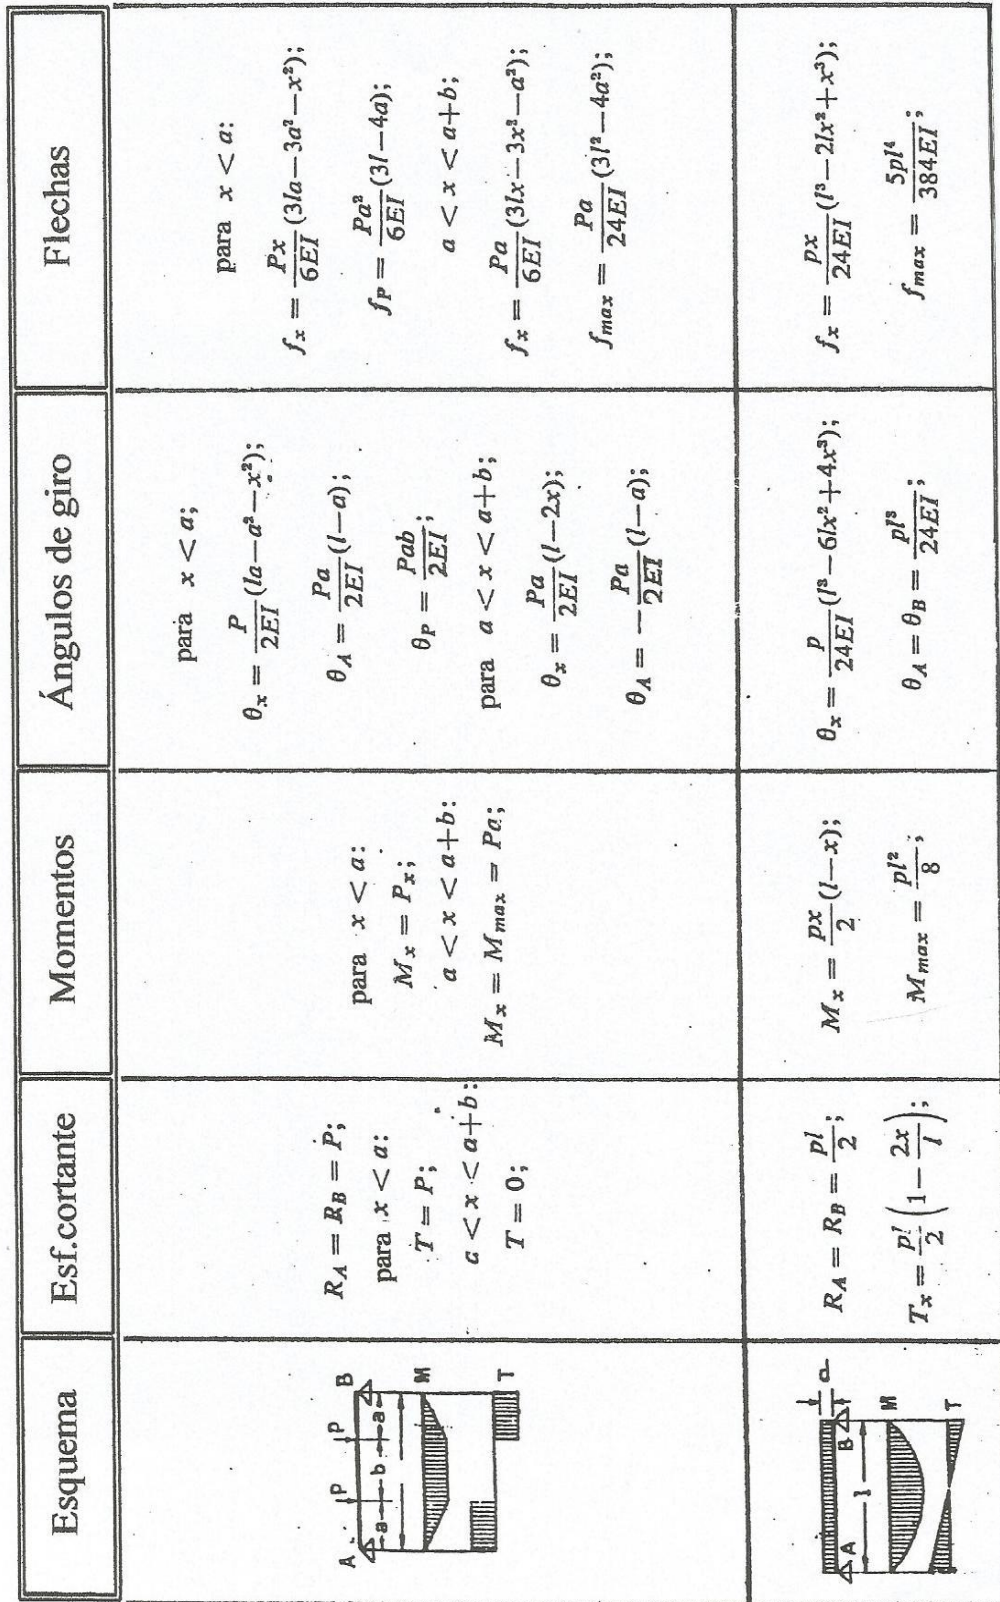 Esquema
Esf.cortante
Momentos
Ángulos de giro
Flechas
P P
A B
a b a
M
T
R_A = R_B = P;
para x < a:
T = P;
c < x < a+b:
T = 0;
para x < a:
M_x = P_x;
a < x < a+b:
M_x = M_max = Pa;
para x < a;
θ_x = P/2EI (la − a² − x²);
θ_A = Pa/2EI (l − a);
θ_P = Pab/2EI;
para a < x < a+b;
θ_x = Pa/2EI (l − 2x);
θ_A = − Pa/2EI (l − a);
para x < a:
f_x = Px/6EI (3la − 3a² − x²);
f_P = Pa²/6EI (3l − 4a);
a < x < a+b;
f_x = Pa/6EI (3lx − 3x² − a²);
f_max = Pa/24EI (3l² − 4a²);
A B
l
M
T
R_A = R_B = pl/2;
T_x = pl/2 (1 − 2x/l);
M_x = px/2 (l − x);
M_max = pl²/8;
θ_x = p/24EI (l³ − 6lx² + 4x³);
θ_A = θ_B = pl³/24EI;
f_x = px/24EI (l³ − 2lx² + x³);
f_max = 5pl⁴/384EI;